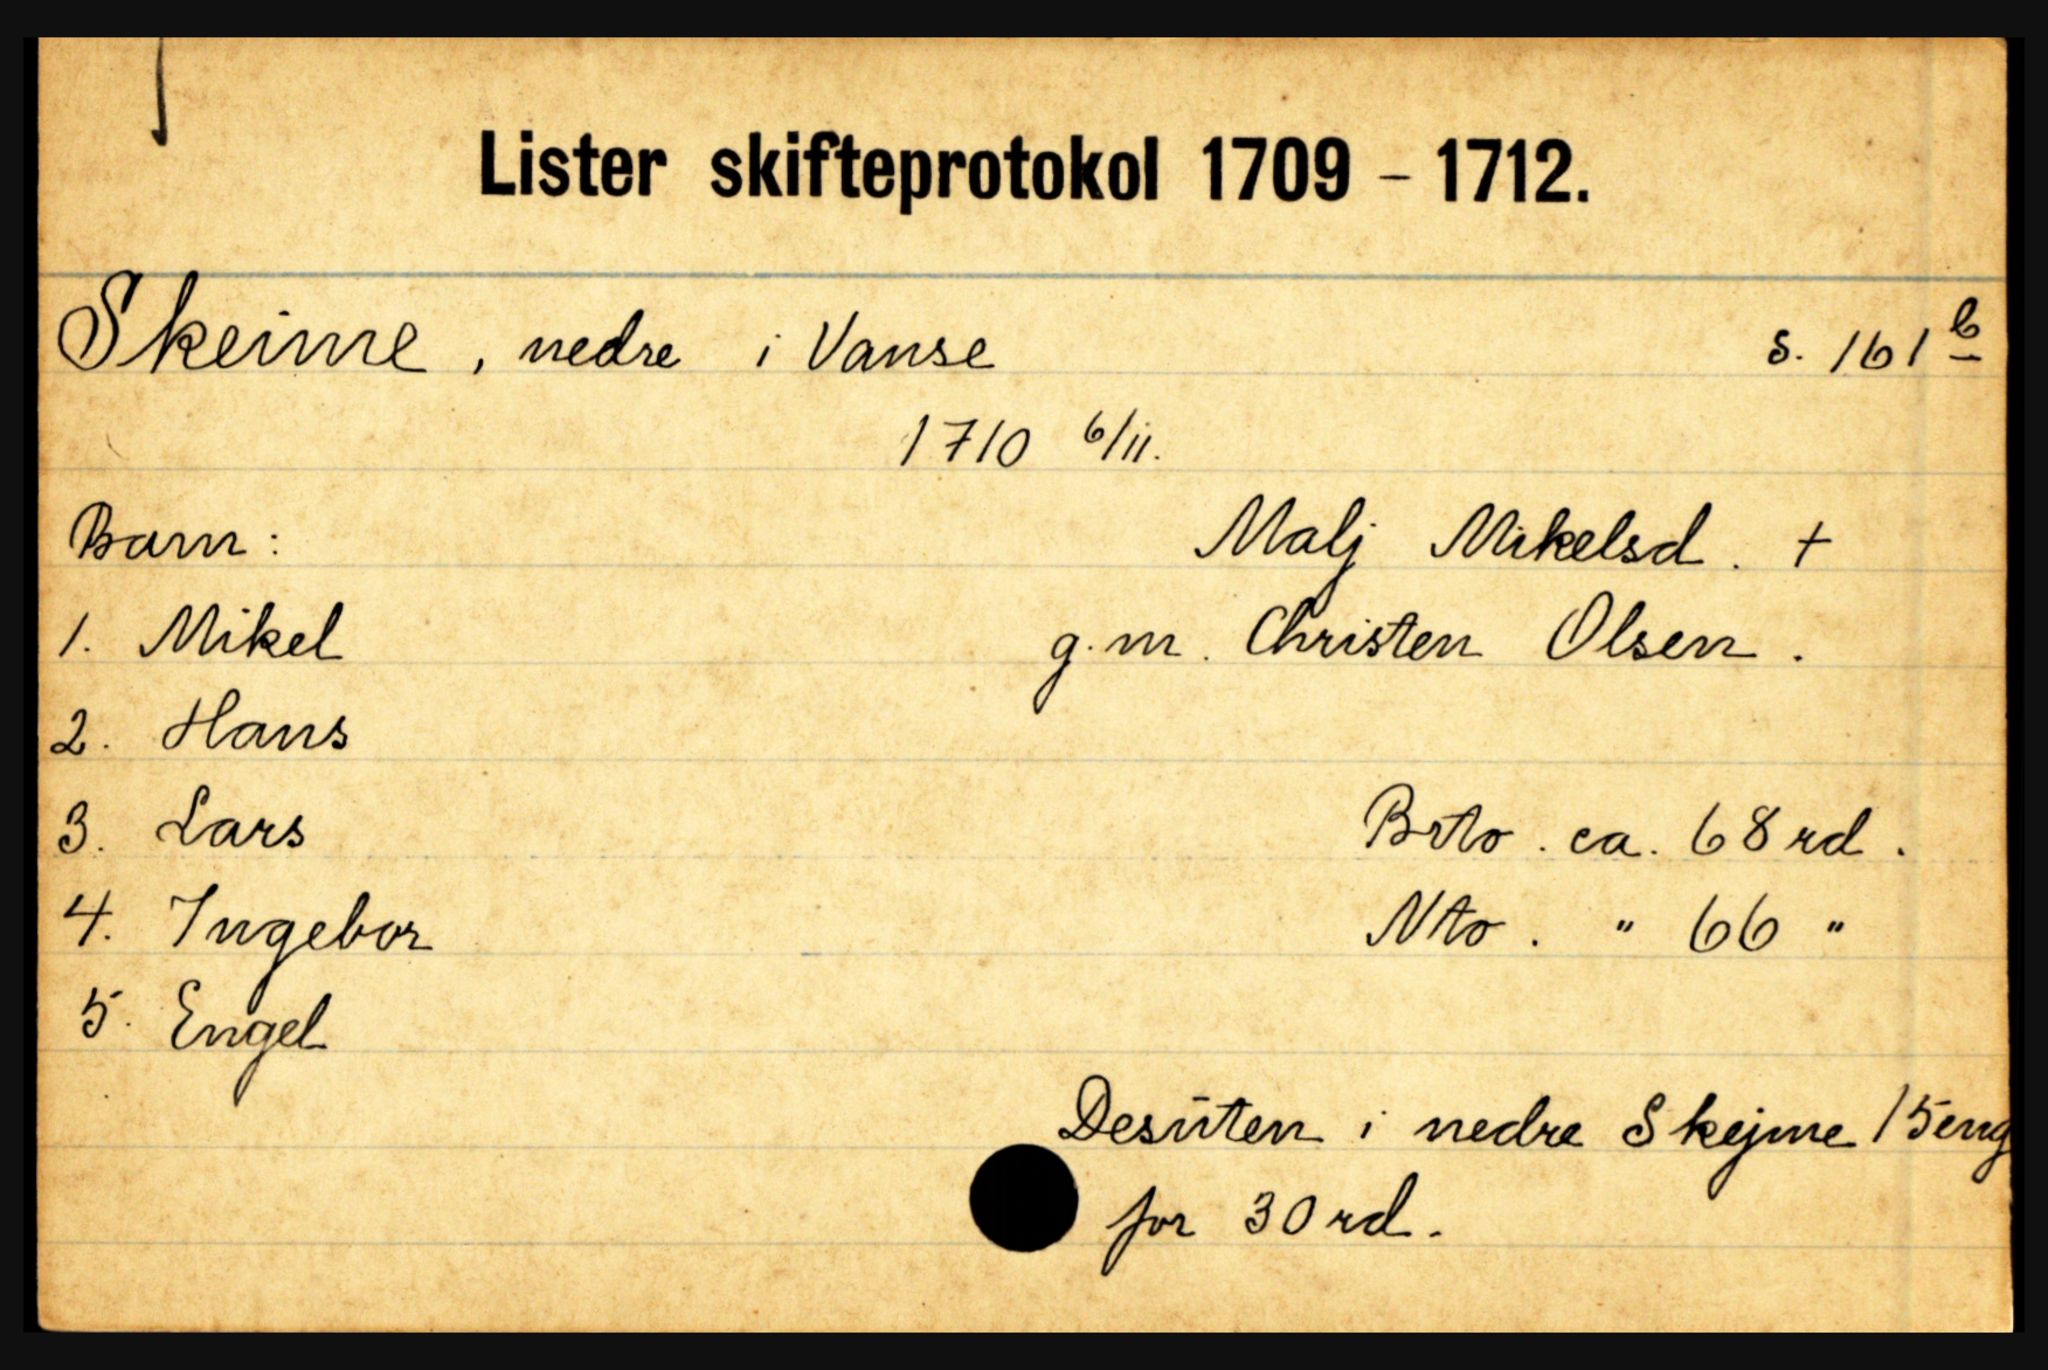 Lister skifteprotokol 1709 - 1712.
Skeime, nedre i Vanse s. 161 b
1710 6/11.
Barn: Malj Mikelsd. +
1. Mikel g.m. Christen Olsen.
2. Hans
3. Lars Brto. ca. 68 rd.
4. Ingebor Nto. " 66 "
5. Engel
Desuten i nedre Skejme 15 eng
for 30 rd.